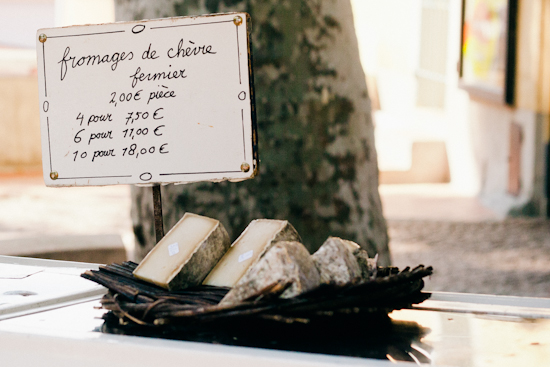 fromages de chèvre
fermier
2,00€ pièce
4 pour 7,50€
6 pour 11,00€
10 pour 18,00€